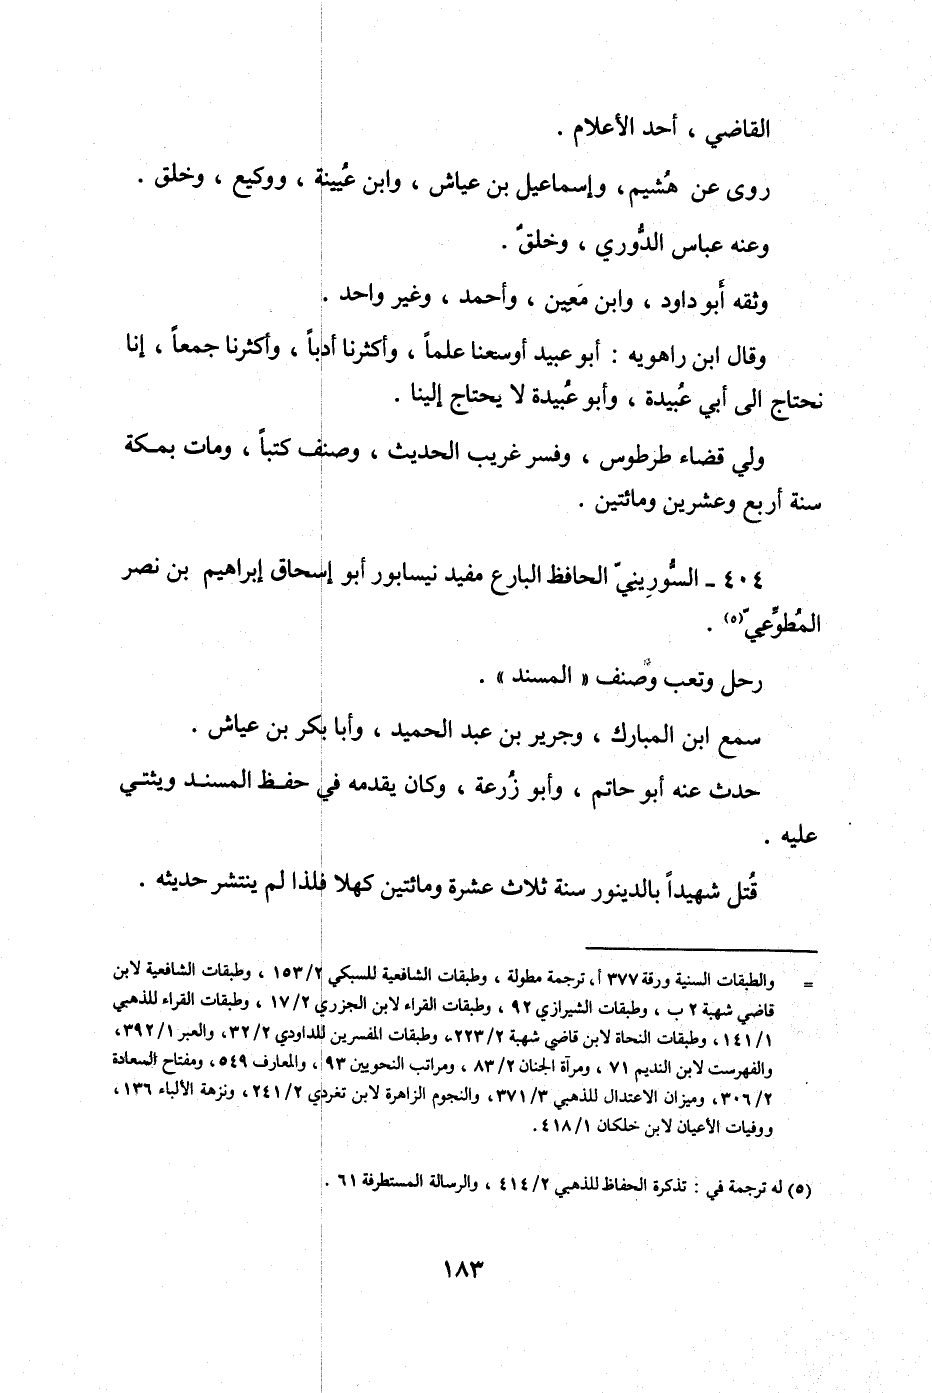 القاضي ، أحد الأعلام .
روى عن هُشيم، وإسماعيل بن عياش ، وابن عُيينة ، ووكيع ، وخلق .
وعنه عباس الدُّوري ، وخلقٌ .
وثقه أَبو داود ، وابن مَعِين ، وأحمد ، وغير واحد .
وقال ابن راهويه : أبو عبيد أوسعنا علماً ، وأكثرنا أدباً ، وأكثرنا جمعاً ، إنا
نحتاج الى أبي عُبيدة ، وأبو عُبيدة لا يحتاج إلينا .
ولي قضاء طرطوس ، وفسر غريب الحديث ، وصنف كتباً ، ومات بمـكة
سنة أربع وعشرين ومائتين .
٤٠٤ ـ السُّورِينيّ الحافظ البارع مفيد نيسابور أبو إسحاق إبراهيم بن نصر
المُطوِّعيّ(٥) .
رحل وتعب وصنف « المسند » .
سمع ابن المبارك ، وجرير بن عبد الحميد ، وأبا بكر بن عياش .
حدث عنه أبو حاتم ، وأبو زُرعة ، وكان يقدمه في حفـظ المسنـد ويثنـي
عليه .
قُتل شهيداً بالدينور سنة ثلاث عشرة ومائتين كهلا فلذا لم ينتشر حديثه .
= والطبقات السنية ورقة ٣٧٧ أ، ترجمة مطولة ، وطبقات الشافعية للسبكي ١٥٣/٢ ، وطبقات الشافعية لابن
قاضي شهبة ٢ ب ، وطبقات الشيرازي ٩٢ ، وطبقات القراء لابن الجزري ١٧/٢ ، وطبقات القراء للذهبي
١٤١/١، وطبقات النحاة لابن قاضي شهبة ٢٢٣/٢، وطبقات المفسرين للداودي ٣٢/٢، والعبر ٣٩٢/١،
والفهرست لابن النديم ٧١ ، ومرآة الجنان ٨٣/٢ ، ومراتب النحويين ٩٣ ، والمعارف ٥٤٩، ومفتاح السعادة
٣٠٦/٢، وميزان الاعتدال للذهبي ٣٧١/٣، والنجوم الزاهرة لابن تغردي ٢٤١/٢، ونزهة الألباء ١٣٦،
ووفيات الأعيان لابن خلكان ٤١٨/١.
(٥) له ترجمة في : تذكرة الحفاظ للذهبي ٤١٤/٢ ، والرسالة المستطرفة ٦١ .
١٨٣